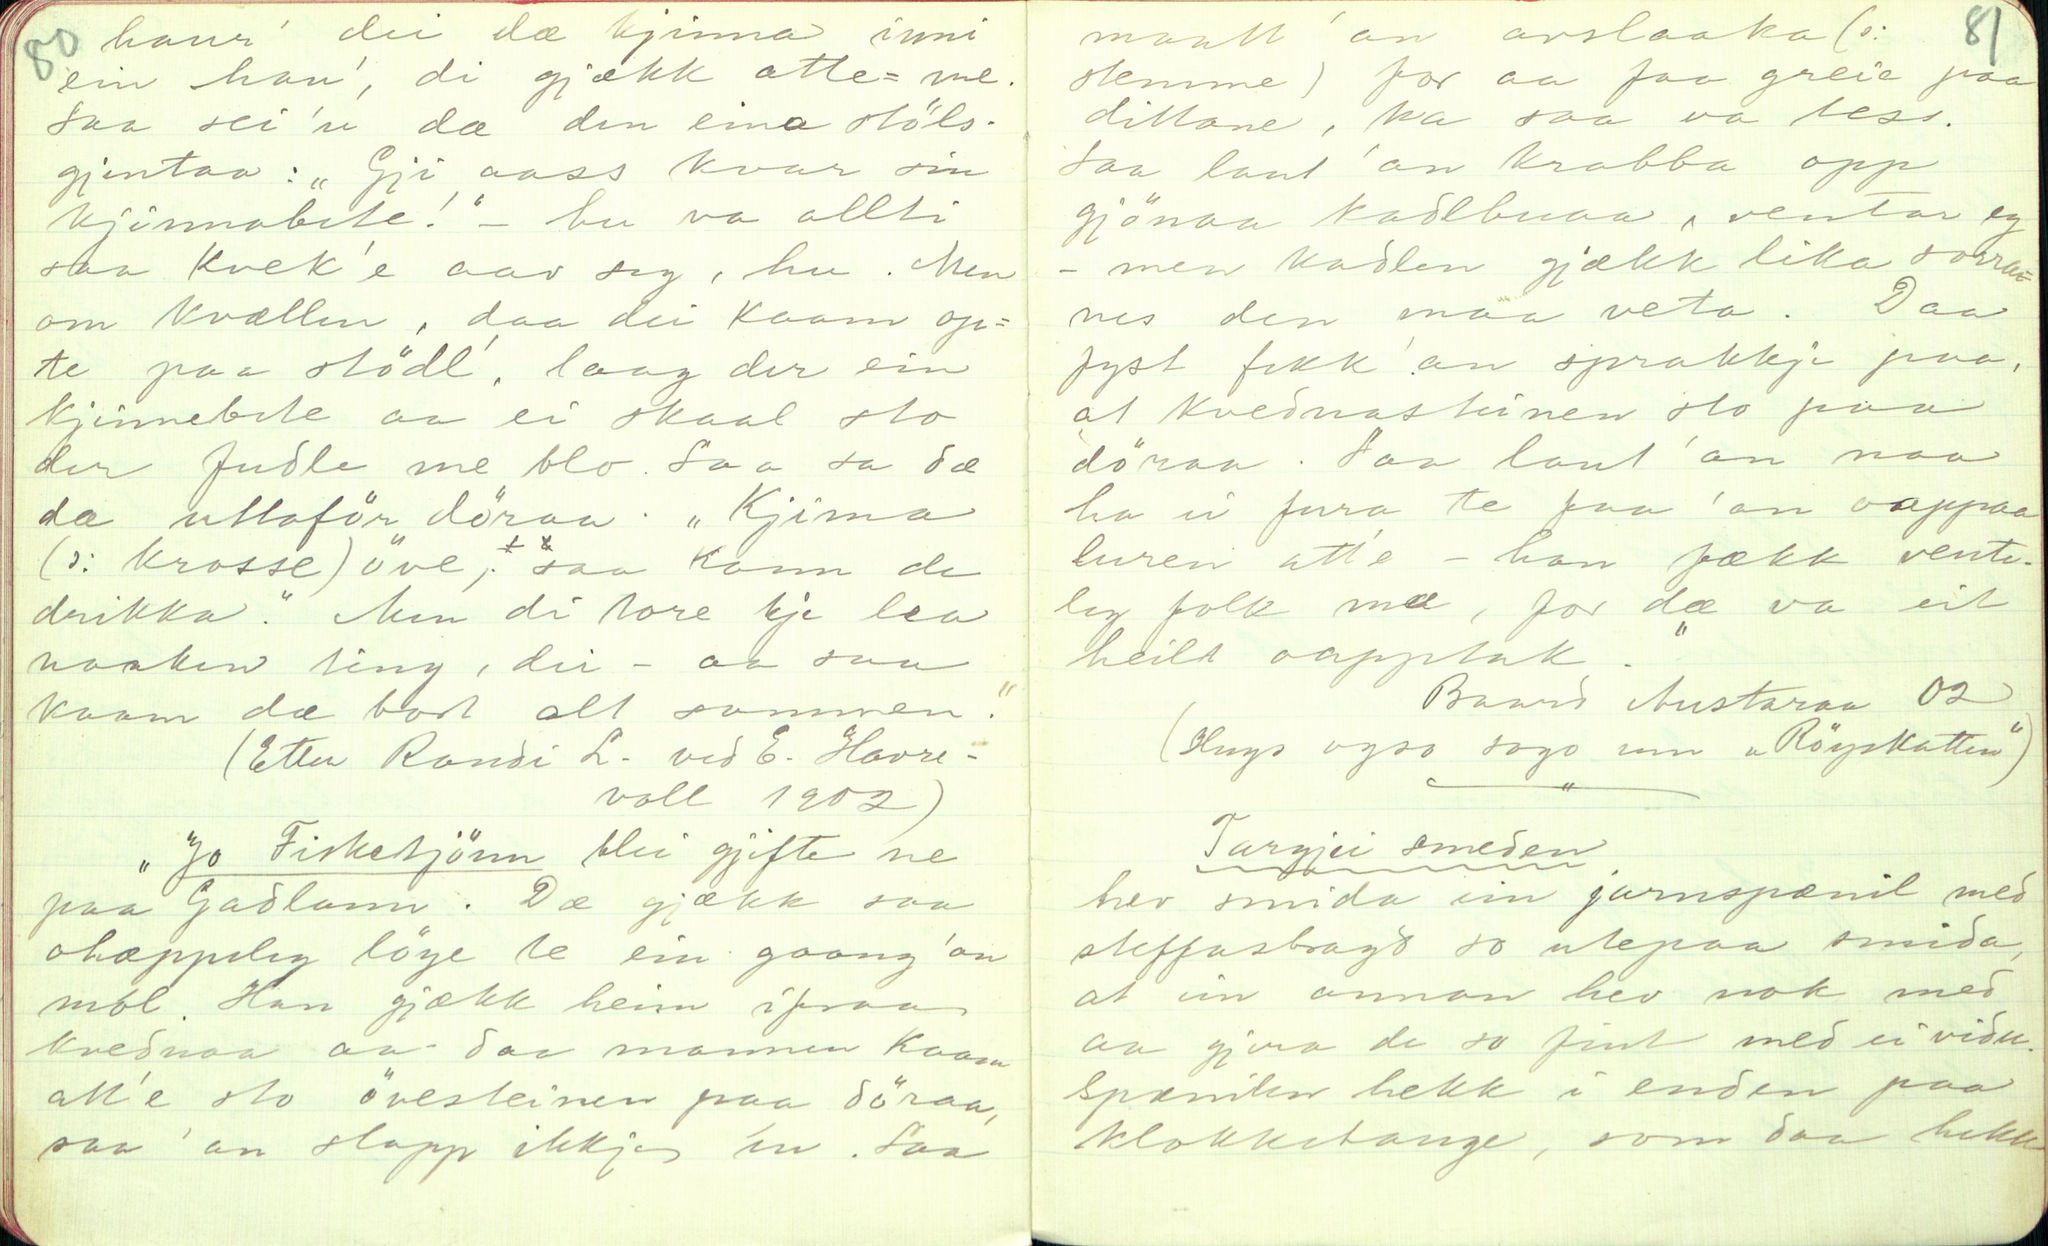 80
haur' dei dæ kjinna inni
ein hau', di gjækk atte=me.
Saa sei'n dæ den eina stöls-
gjentaa: „Gji aass kvar sin
kjinnabete!" – hu va allti
saa kvek'e aav seg, hu. Men
om kvællen, daa dei kaam op=
te paa stödl', laag der ein
kjinnebete aa ei skaal sto
der fudle me blo. Saa sa dæ
dæ uttaför döraa. „Kjima
(ɔ: krosse) öve, saa kann de
drikka." Men di tore kje lea
naaken ting, dei – aa saa
kaam dæ bort alt sammen."
(Etter Randi L. ved E. Havre-
voll 1902)
„Jo Fisketjönn blei gjifte ne
paa Gadlann. Dæ gjækk saa
ohæppeleg löge te ein gaang 'an
mol. Han gjækk heim ifraa
kvednaa aa daa mannen kaam
att'e sto övesteinen paa döraa,
saa 'an slapp ikkje in. Saa
81
maatt 'an avslaaka (ɔ:
stemme) for aa faa greie paa
dittane, ka saa va tess.
Saa laut 'an krabba opp
gjönaa kadlbuaa, ventar eg
– men kadlen gjækk lika sorra=
nes den maa veta. Daa
fyst fekk 'an sprakkje paa,
at kvednasteinen sto paa
döraa. Saa laut 'an naa
ha ei fura te faa 'an oappaa
luren att'e – han fækk vente-
leg folk mæ, for dæ va eit
heilt oapptak."
Baard Austaraa 02
(Hugs ogso sogo um „Röyskatten")
Targjei smeden
hev smida ein jarnspænil med
steffasbragd so utepaa smida,
at ein annan hev nok med
aa gjera de so fint med ei vidu.
Spænilen hekk i enden paa
klokketauge, som daa hekk